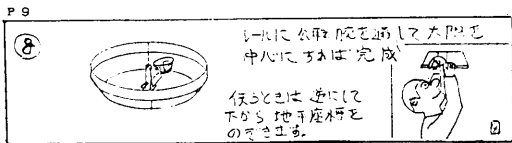 P 9
⑧
レールに公転腕を通して太陽を
中心にすれば完成
使うときは逆にして
下から地平座標を
のぞきます。